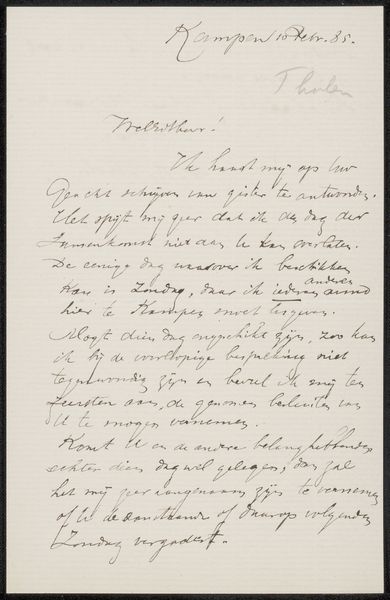 Kampen 10 Febr. 85.
Tholen
WelEdHeer!
Ik haast mij op Uw
Geacht schrijven van gister te antwoorden.
Het spijt mij zeer dat ik den dag der
samenkomst niet aan U kan overlaten.
De eenige dag waarover ik beschikken
kan is Zondag, daar ik iederen anderen avond
hier te Kampen moet lesgeven.
Mogt dien dag ongeschikt zijn, zoo kan
ik bij de voorloopige bespreking niet
tegenwoordig zijn en beveel ik mij ten
zeersten aan, de genomen besluiten van
U te mogen vernemen.
Komt U en de andere belanghebbenden
echter dien dag wel gelegen, dan zal
het mij zeer aangenaam zijn te vernemen
of U de aanstaande of daarop volgenden
Zondag vergadert.